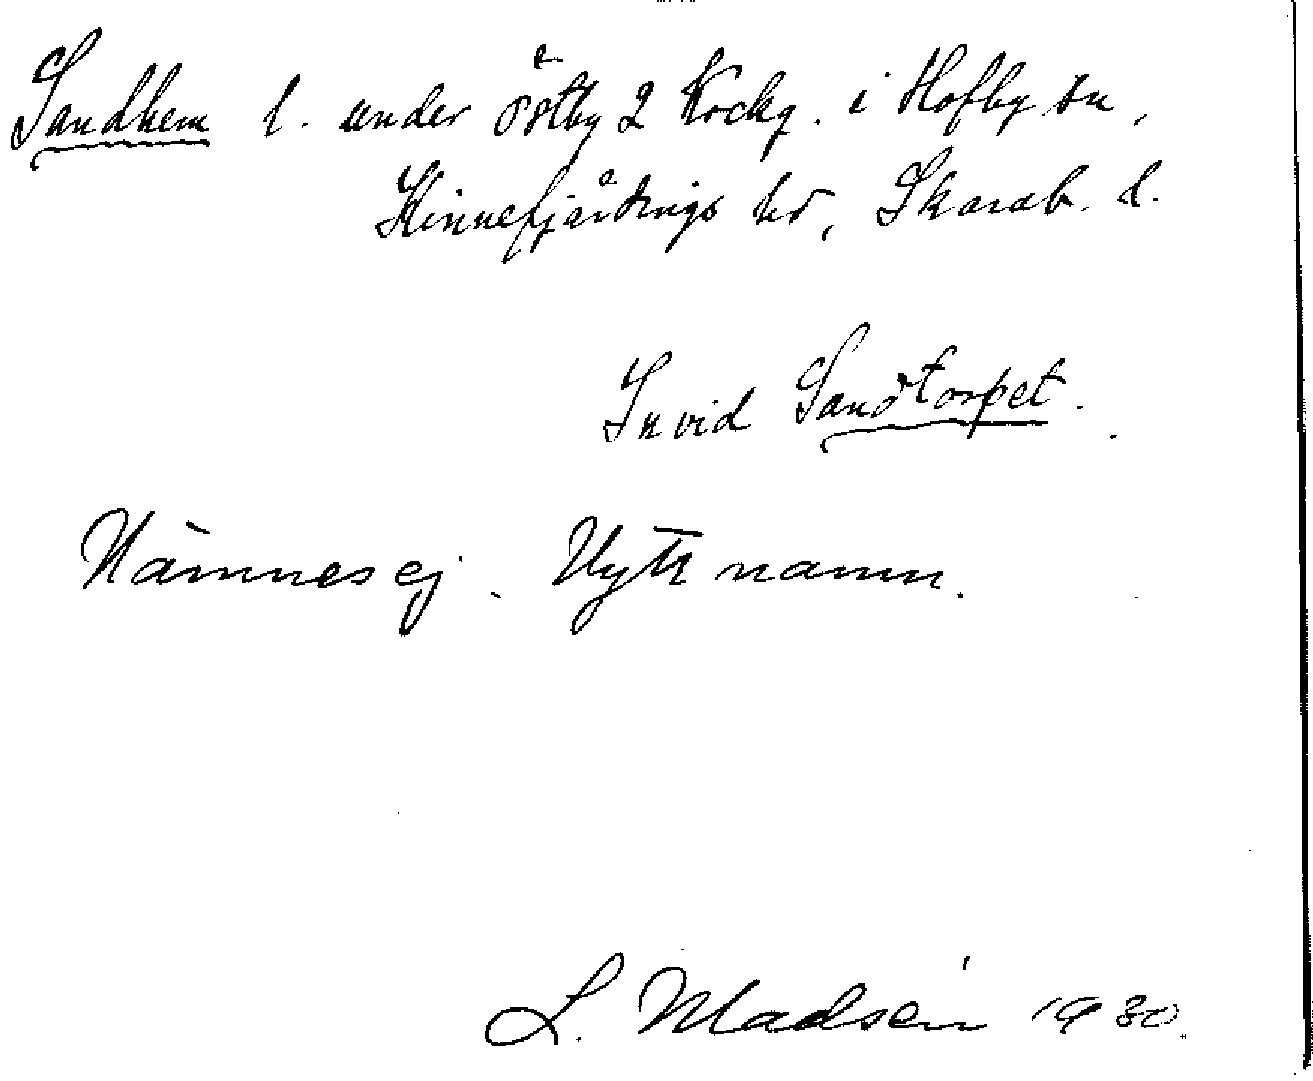 Sandhem l. under Östby 2 Kockg. i Hofby sn,
Kinnefjärdings hd, Skarab. l.
Invid Sandtorpet.
Nämnes ej. Nytt namn.
L. Madsén 1930.